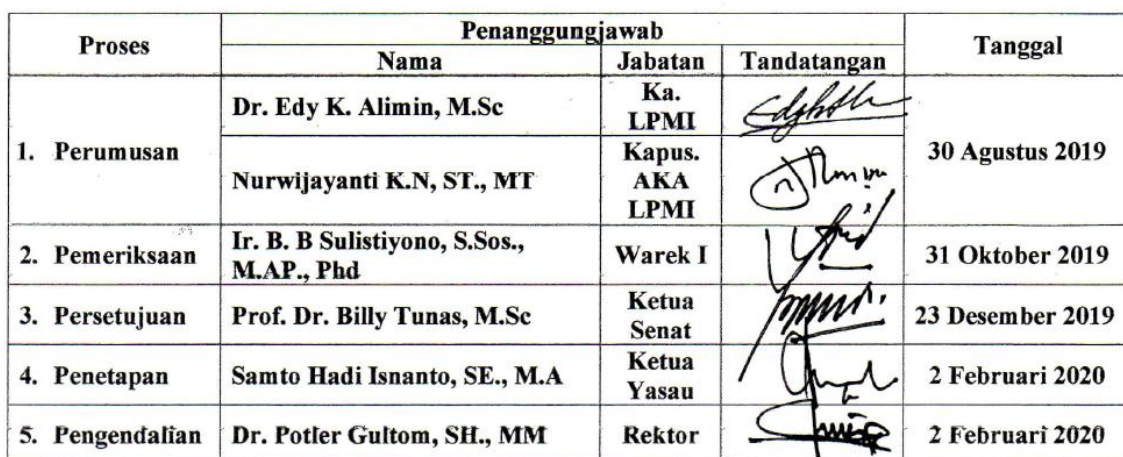 Proses
Penanggungjawab
Tanggal
Nama
Jabatan
Tandatangan
1. Perumusan
Dr. Edy K. Alimin, M.Sc
Ka.
LPMI
30 Agustus 2019
Nurwijayanti K.N, ST., MT
Kapus.
AKA
LPMI
2. Pemeriksaan
Ir. B. B Sulistiyono, S.Sos.,
M.AP., Phd
Warek I
31 Oktober 2019
3. Persetujuan
Prof. Dr. Billy Tunas, M.Sc
Ketua
Senat
23 Desember 2019
4. Penetapan
Samto Hadi Isnanto, SE., M.A
Ketua
Yasau
2 Februari 2020
5. Pengendalian
Dr. Potler Gultom, SH., MM
Rektor
2 Februari 2020